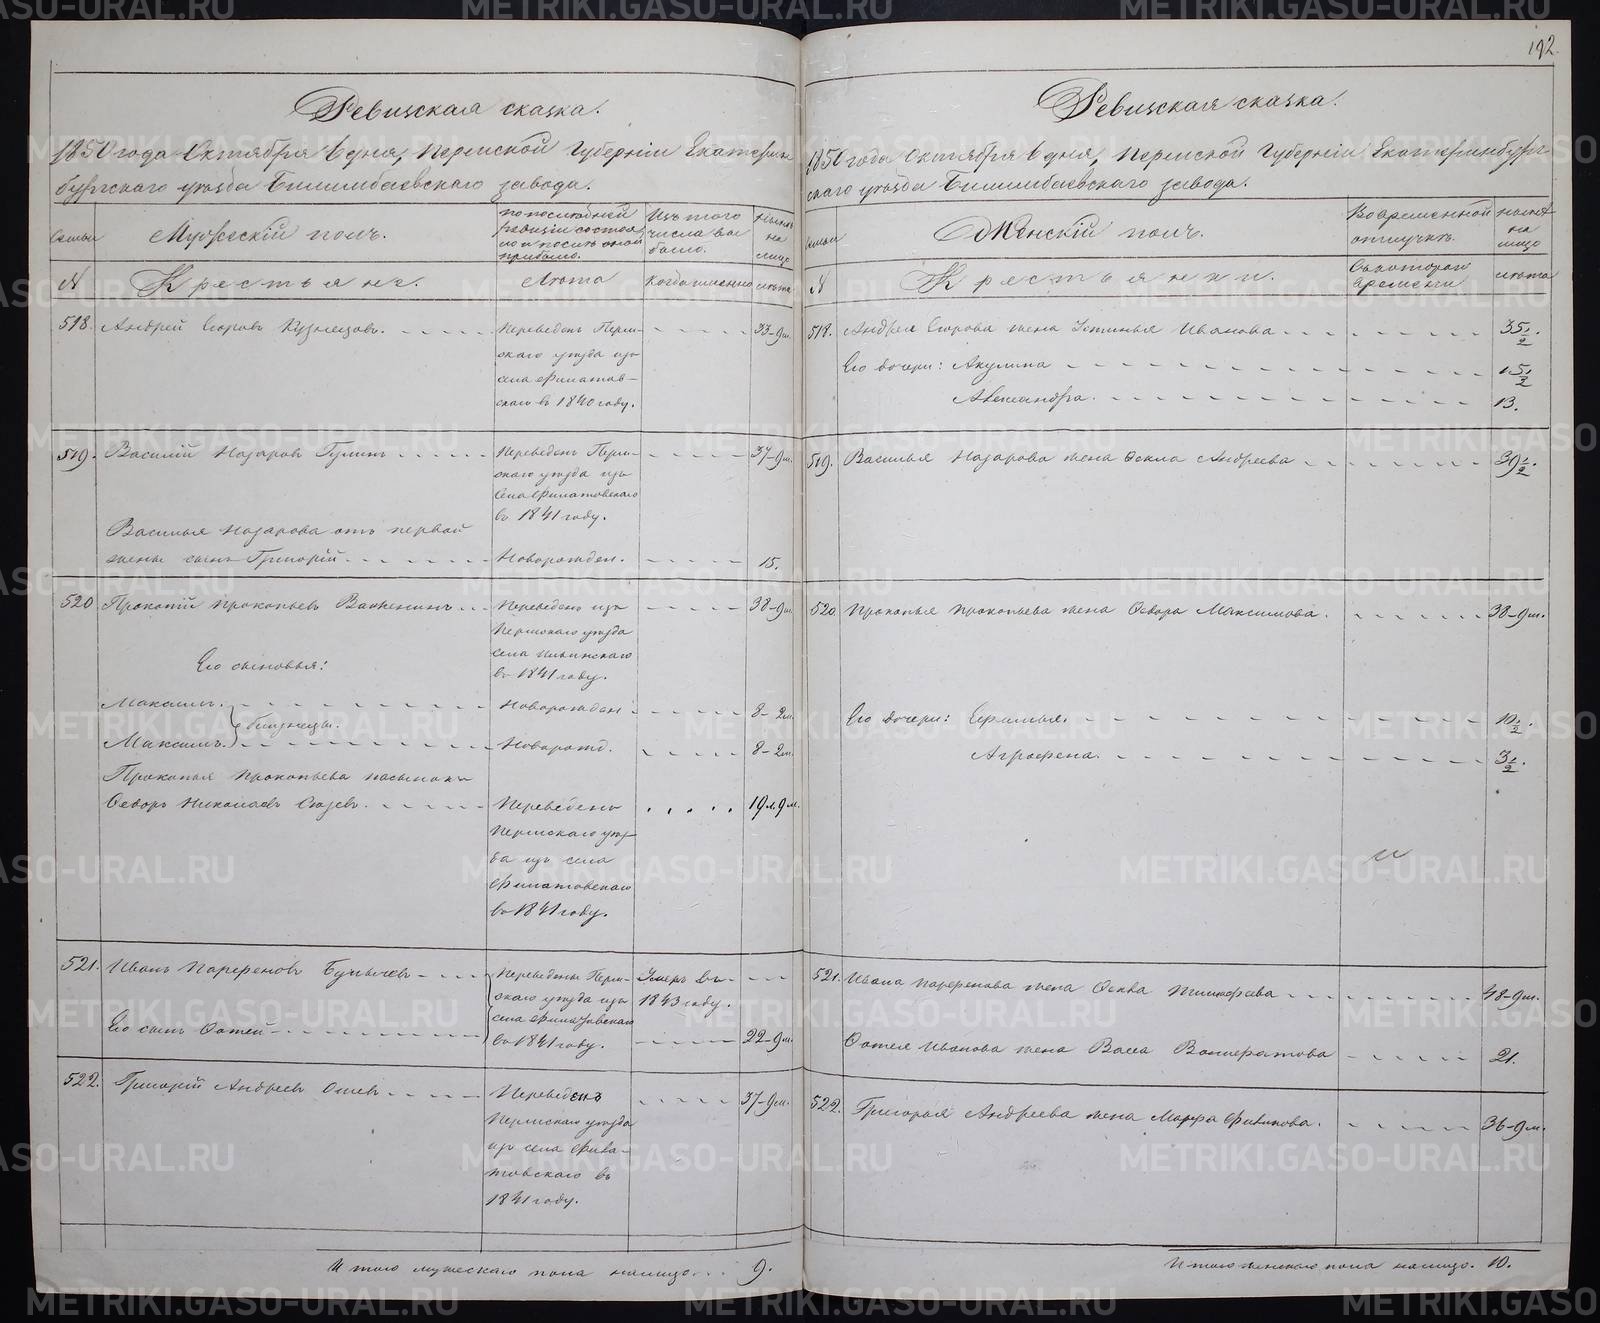 192.
Ревизская сказка.
1850 года Октября 6 дня, Пермской Губерніи Екатерин
бургскаго уѣзда Билимбаевскаго завода.
Семьи
Мужескій полъ.
По послѣдней
ревизіи состоя
ло и послѣ оной
прибыло.
Изъ того
числа вы
было.
Нынѣ
на
лицо
№
Крестьяне.
Лѣта
Когда именно
лѣта
518.
Андрей Егоровъ Кузнецовъ.
Переведенъ Перм-
скаго уѣзда изъ
села Филатов-
скаго въ 1840 году.
33-9м.
519.
Василій Назаровъ
Переведенъ Перм-
скаго уѣзда изъ
села Филатовскаго
въ 1841 году.
37-9м.
Василья Назарова отъ первой
жены сынъ Григорій.
Новорожден.
15.
520
Прокопій Прокопьевъ
Переведенъ изъ
Пермскаго уѣзда
села Ильинскаго
въ 1841 году.
38-9м.
Его сыновья:
Максимъ.
Новорожден
8-2м.
близнецы.
Максимъ.
Новорожд.
8-2м.
Прокопья Прокопьева пасынок
Ѳедоръ Николаевъ
Переведенъ
Пермскаго уѣз-
да изъ села
Филатовскаго
въ 1841 году.
19л.9м.
521.
Иванъ Парфеновъ
Переведены Перм-
скаго уѣзда изъ
села Филатовскаго
въ 1841 году.
Умеръ въ
1843 году.
Его сынъ Фотей
22-9м.
522.
Григорій Андреевъ
Переведенъ
Пермскаго уѣзда
изъ села Фила-
товскаго въ
1841 году.
37-9м.
Итого мужескаго пола налицо... 9.
Ревизская сказка.
1850 года Октября 6 дня, Пермской Губерніи Екатеринбург-
скаго уѣзда Билимбаевскаго завода.
Семьи
Женскій полъ.
Во временной
отлучкѣ.
Нынѣ
на
лицо
№
Крестьянки.
Съ котораго
времени
лѣта
518.
Андрея Егорова жена Устинья Иванова
35½.
Его дочери: Акулина
15½
Александра.
13.
519.
Василья Назарова жена Ѳекла Андреева
39½.
520.
Прокопья Прокопьева жена Ѳедора Максимова.
38-9м.
Его дочери:
10½.
Аграфена.
3½.
521.
Ивана Парфенова жена Тимофева
48-9м.
Фотея Иванова жена Васса
21.
522.
Григорья Андреева жена Марфа
36-9м.
Итого женскаго пола налицо. 10.
METRIKI.GASO-URAL.RU